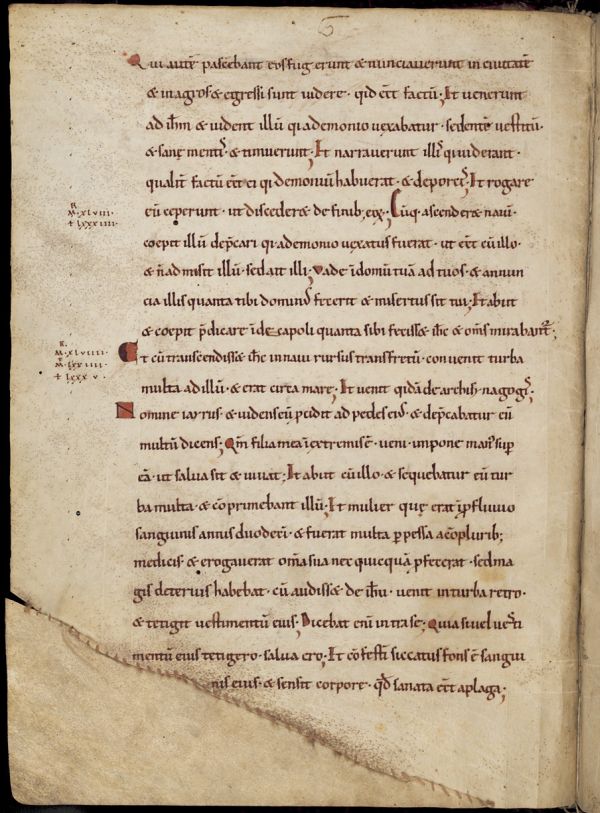 Qui autē pascebant eos fugerunt & nunciaverunt in civitatē
& in agros & egressi sunt videre · qid eēt factū; Et venerunt
ad ihm̄ & vident illū qi ademonio vexabatur · sedentē vestitū·
& sanę mentis & timuerunt; Et narraverunt illis qi viderant ·
qualit̄ factū eēt ei qi demoniū habuerat · & de porcis; Et rogare
eū ceperunt · ut discederæ de finib; eix; Cūq· ascenderæ navī·
coepit illū dep̄cari qi ademonio vexatus fuerat · ut eēt cū illo·
& n̄ admisit illū· sed ait illi; Vade ī domū tuā ad tuos · & annun
cia illis quanta tibi dominus fecerit & misertus sit tui; Et abiit
& coepit p̄dicare ī decapoli quanta sibi fecissæ ihc̄ & om̄s mirabantur;
Et cū transcendissæ ihc̄ in navi rursus transfretū· convenit turba
multa ad illū · & erat circa mare; Et venit qidā de archisinagogis;
Nomine iayrus · & videns eū p̄cidit ad pedes eius & dep̄cabatur eū
multū dicens; Qm̄ filia mea ī extremis ē · veni · impone manus sup
eā · ut salva sit & vivat; Et abiit cū illo · & sequebatur eū tur
ba multa · & cōprimebant illū; Et mulier quę erat ī p̄fluvio
sanguinis annis duodeci· & fuerat multa perpessa a cōplurib;
medicis & erogaverat om̄a sua nec quicquā p̄fecerat · sed ma
gis deterius habebat · cū audissæ de ihū · venit in turba retro·
& tetigit vestimentū eius; Dicebat enī intra se; Quia si vel vesti
mentū eius tetigero · salva ero; Et cōfestī siccatus fons ē sangui
nis eius · & sensit corpore · qd̄ sanata eēt a plaga;
R
M·XLVIII·
+ LXXXIIII·
R·
M·XLVIIII·
M·LXXIIII·
+ LXXXV·